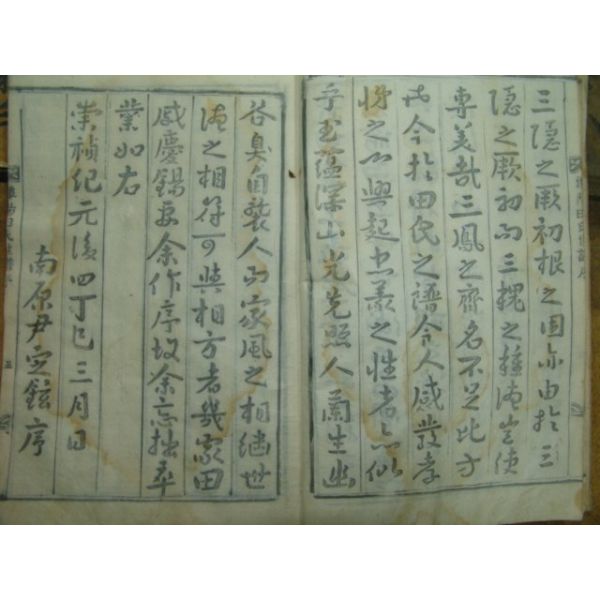 三隱之厥初根之固亦由於三
隱之厥初而三槐之種德豈使
專美哉三鳳之齊名不足比方
今於田氏之譜令人感發孝
悌之心興起忠義之性者
乎玉蘊深山光先照人蘭生幽
谷臭自襲人而家風之相繼世
德之相符可與相方者幾家田
感慶錫要余作序故余忘拙卒
業如右
崇禎紀元後四丁巳三月日
南原尹定鉉序
五